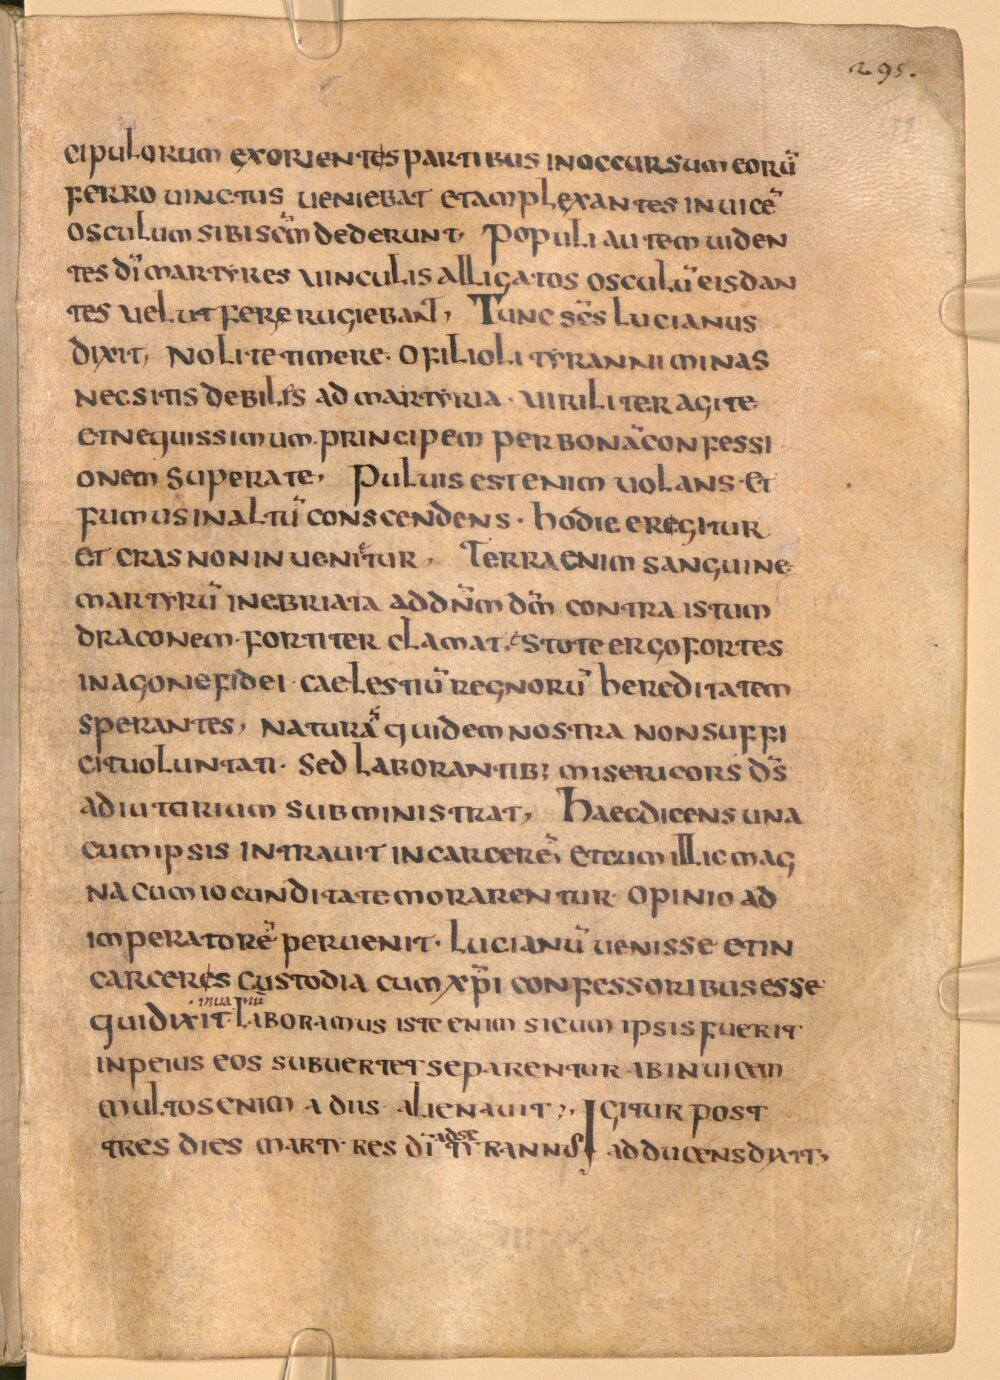 295.
cipulorum exorientes partibus in occursum eorū
ferro uinctus ueniebat et amplexantes inuicē
osculum sibi scm̄ dederunt, Populi autem uiden
tes dī martyres uinculis alligatos osculū eis dan
tes uelut fere rugiebant, Tunc scs̄ Lucianus
dixit, Nolite timere. O filioli tyranni minas
nec sitis debiles ad martyria. uiriliter agite
et nequissimum principem per bonā confessi
onem superate, Puluis est enim uolans et
fumus in altū conscendens. hodie eregitur
et cras non inuenietur, Terra enim sanguine
martyrū inebriata ad dnm̄ dm̄ contra istum
draconem fortiter clamat. estote ergo fortes
in agone fidei caelestiū regnorū hereditatem
sperantes, naturā quidem nostra non suffi
cit uoluntati. sed laborantib; misericors ds̄
adiutorium subministrat, Haec dicens una
cum ipsis intrauit in carcerē, et cum illic mag
na cum iocunditate morarentur. opinio ad
imperatorē peruenit. Lucianū uenisse et in
carceres custodia cum xp̄i confessoribus esse
inua nū
qui dixit. laboramus iste enim si cum ipsis fuerit
in peius eos subuertet separentur ab inuicem
multos enim a diis alienauit;, Igitur post
adse
tres dies martyres dī tyrannus adducens dixit,